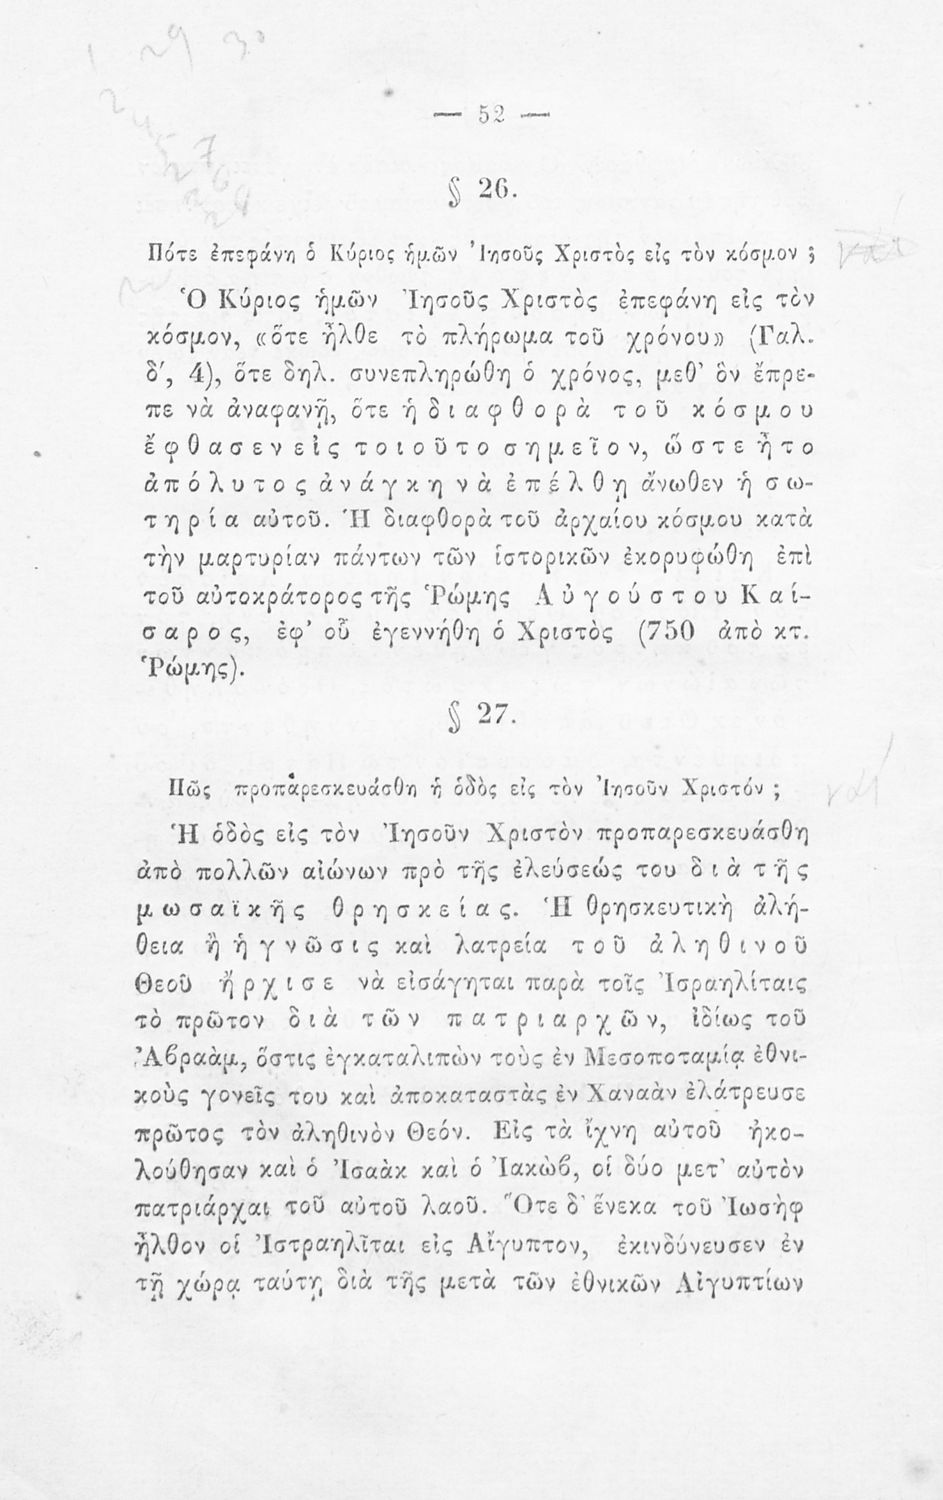 — 52 —
§ 26.
Πότε ἐπεφάνη ὁ Κύριος ἡμῶν Ἰησοῦς Χριστὸς εἰς τὸν κόσμον ;
Ὁ Κύριος ἡμῶν Ἰησοῦς Χριστὸς ἐπεφάνη εἰς τὸν
κόσμον, «ὅτε ἦλθε τὸ πλήρωμα τοῦ χρόνου» (Γαλ.
δ', 4), ὅτε δηλ. συνεπληρώθη ὁ χρόνος, μεθ' ὃν ἔπρε-
πε νὰ ἀναφανῇ, ὅτε ἡ διαφθορὰ τοῦ κόσμου
ἔφθασεν εἰς τοιοῦτο σημεῖον, ὥστε ἦτο
ἀπόλυτος ἀνάγκη νὰ ἐπέλθῃ ἄνωθεν ἡ σω-
τηρία αὐτοῦ. Ἡ διαφθορὰ τοῦ ἀρχαίου κόσμου κατὰ
τὴν μαρτυρίαν πάντων τῶν ἱστορικῶν ἐκορυφώθη ἐπὶ
τοῦ αὐτοκράτορος τῆς Ῥώμης Αὐγούστου Καί-
σαρος, ἐφ' οὗ ἐγεννήθη ὁ Χριστὸς (750 ἀπὸ κτ.
Ῥώμης).
§ 27.
Πῶς προπαρεσκευάσθη ἡ ὁδὸς εἰς τὸν Ἰησοῦν Χριστόν ;
ναί
Ἡ ὁδὸς εἰς τὸν Ἰησοῦν Χριστὸν προπαρεσκευάσθη
ἀπὸ πολλῶν αἰώνων πρὸ τῆς ἐλεύσεώς του διὰ τῆς
μωσαϊκῆς θρησκείας. Ἡ θρησκευτικὴ ἀλή-
θεια ἢ ἡ γνῶσις καὶ λατρεία τοῦ ἀληθινοῦ
Θεοῦ ἤρχισε νὰ εἰσάγηται παρὰ τοῖς Ἰσραηλίταις
τὸ πρῶτον διὰ τῶν πατριαρχῶν, ἰδίως τοῦ
Ἀβραὰμ, ὅστις ἐγκαταλιπὼν τοὺς ἐν Μεσοποταμίᾳ ἐθνι-
κοὺς γονεῖς του καὶ ἀποκαταστὰς ἐν Χαναὰν ἐλάτρευσε
πρῶτος τὸν ἀληθινὸν Θεόν. Εἰς τὰ ἴχνη αὐτοῦ ἠκο-
λούθησαν καὶ ὁ Ἰσαὰκ καὶ ὁ Ἰακὼβ, οἱ δύο μετ' αὐτὸν
πατριάρχαι τοῦ αὐτοῦ λαοῦ. Ὅτε δ' ἕνεκα τοῦ Ἰωσὴφ
ἦλθον οἱ Ἰστραηλῖται εἰς Αἴγυπτον, ἐκινδύνευσεν ἐν
τῇ χώρᾳ ταύτῃ διὰ τῆς μετὰ τῶν ἐθνικῶν Αἰγυπτίων